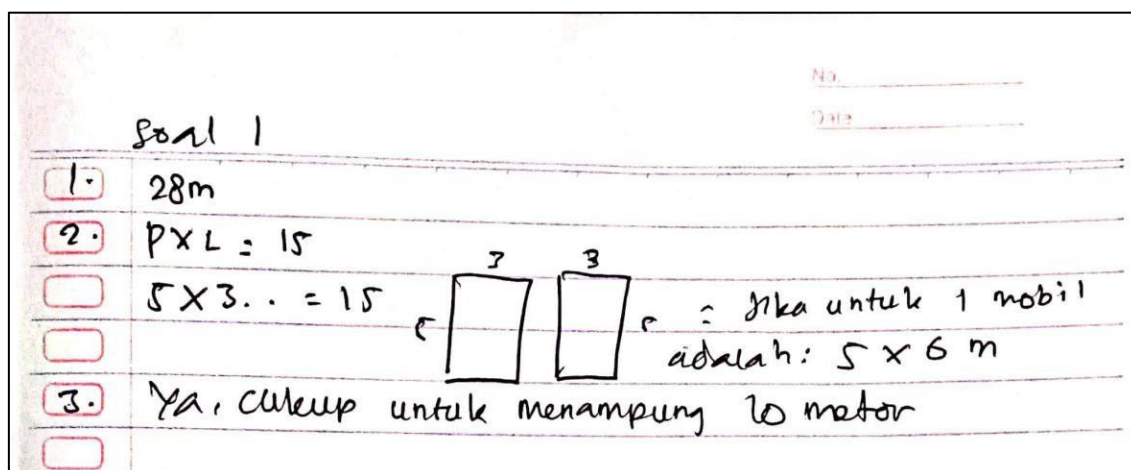 No.
Date
Soal 1
1. 28m
2. P X L = 15
3 3
5 X 3 . . = 15 5 5 = Jika untuk 1 mobil
adalah: 5 X 6 m
3. Ya, cukup untuk menampung 20 motor